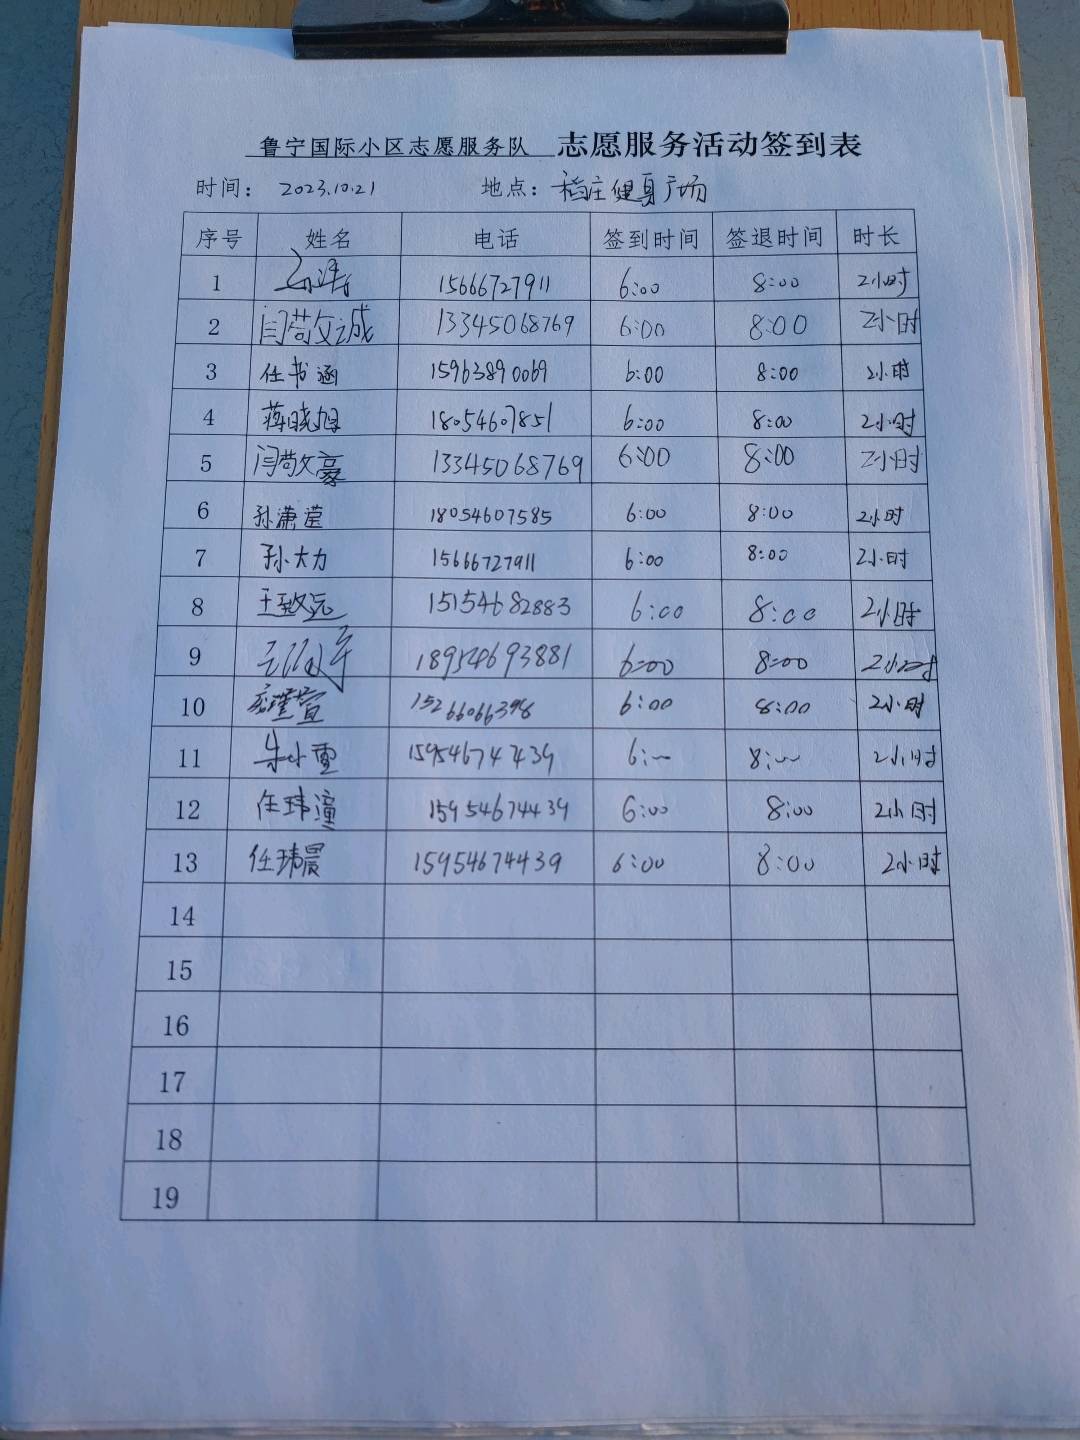 鲁宁国际小区志愿服务队 志愿服务活动签到表
时间： 2023.10.21 地点：稻庄健身广场
序号 姓名 电话 签到时间 签退时间 时长
1 15666727911 6:00 8:00 2小时
2 闫敬文诚 13345068769 6:00 8:00 2小时
3 任书涵 15963890069 6:00 8:00 2小时
4 蒋晓旭 18054607851 6:00 8:00 2小时
5 闫敬文豪 13345068769 6:00 8:00 2小时
6 孙潇莹 18054607585 6:00 8:00 2小时
7 孙大力 15666727911 6:00 8:00 2小时
8 王致远 15154682883 6:00 8:00 2小时
9 18954693881 6:00 8:00 2小时
10 15266066398 6:00 8:00 2小时
11 朱小重 15954674439 6:~ 8:~ 2小时
12 任玮潼 15954674439 6:00 8:00 2小时
13 任玮晨 15954674439 6:00 8:00 2小时
14
15
16
17
18
19